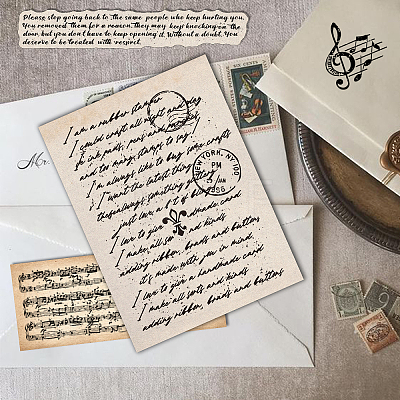 Please stop going back to the same people who keep hurting you.
You removed them for a reason. They may keep knocking on the
door, but you don't have to keep opening it. Without a doubt, You
deserve to be treated with respect.
SIX CENTS
Mr.
I am a rubber stamper
I could craft all night and day
So ink pads, pens and
and too many stamps to say!
I'm always like to buy some crafts
I want the latest thing
there's always something
just love a bit of bling
I love to give handmade card
I make all so and kinds
adding ribbon, brads and buttons
it's made with you in mind
I love to give a handmade card
I make all sorts and kinds
adding ribbon, brads and buttons
NEW YORK, NY
PM
1956
9